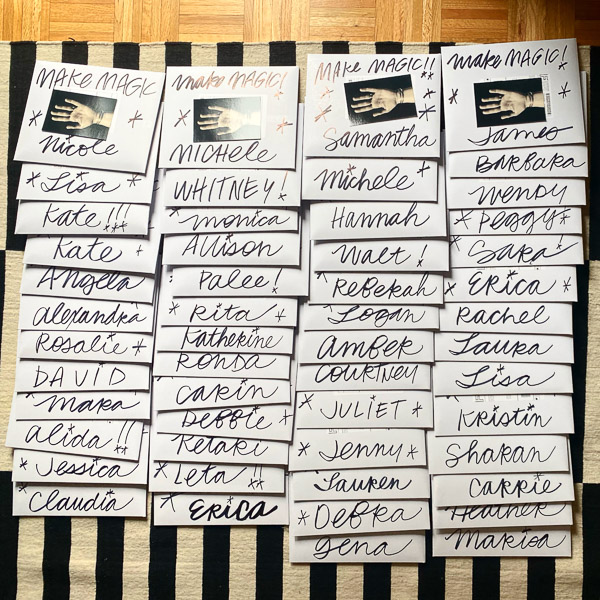 MAKE MAGIC
Nicole
Lisa
Kate!!!
Kate
Angela
alexandra
Rosalie
DAVID
Mara
alida!!
Jessica
Claudia
make MAGIC!
MICHELE
WHITNEY!
monica
ALLISON
PALEE!
Rita
Katherine
RONDA
CARIN
DEBBIE
Retaki
Leta !!
ERICA
MAKE MAGIC!!
Samantha
Michele
HANNAH
WALT !
REBEKAH
Logan
AMBER
COURTNEY
JULIET
Jenny
Lauren
DEBRA
Gena
make MAGIC!
James
BARBARA
WENDY
PEGGY
SARA
ERICA
Rachel
Laura
Lisa
KRISTIN
SHARAN
CARRIE
HEATHER
MARISA